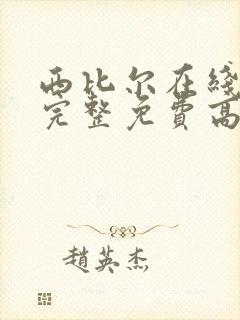 西比尔在綫
完整免費高
趙英杰